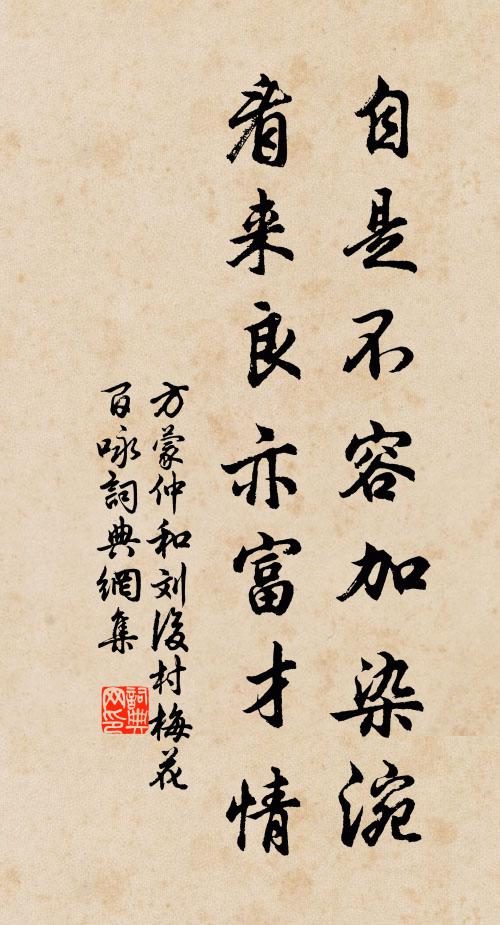 自是不容加染涴
看来良亦富才情
方蒙仲和刘後村梅花
百咏詞典網集
詞典网印